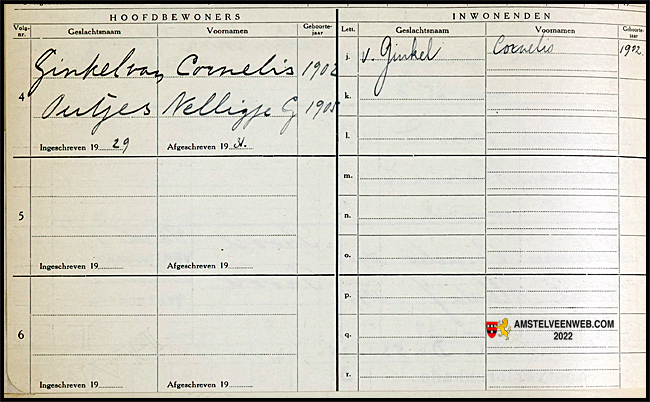 HOOFDBEWONERS
Volg-nr. Geslachtsnaam Voornamen Geboorte-jaar
4 Ginkel van Cornelis 1902
Outjes Nelligje G 1905
Ingeschreven 19 29 Afgeschreven 19 31.
5
Ingeschreven 19 Afgeschreven 19
6
Ingeschreven 19 Afgeschreven 19
INWONENDEN
Lett. Geslachtsnaam Voornamen Geboorte-jaar
j. v. Ginkel Cornelis 1902
k.
l.
m.
n.
o.
p.
q.
r.
AMSTELVEENWEB.COM
2022